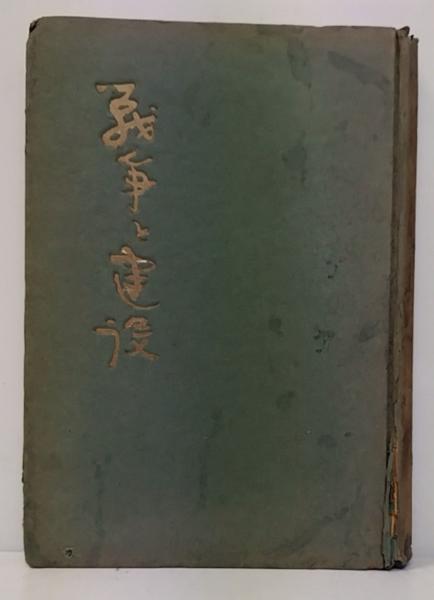 戦争と建設